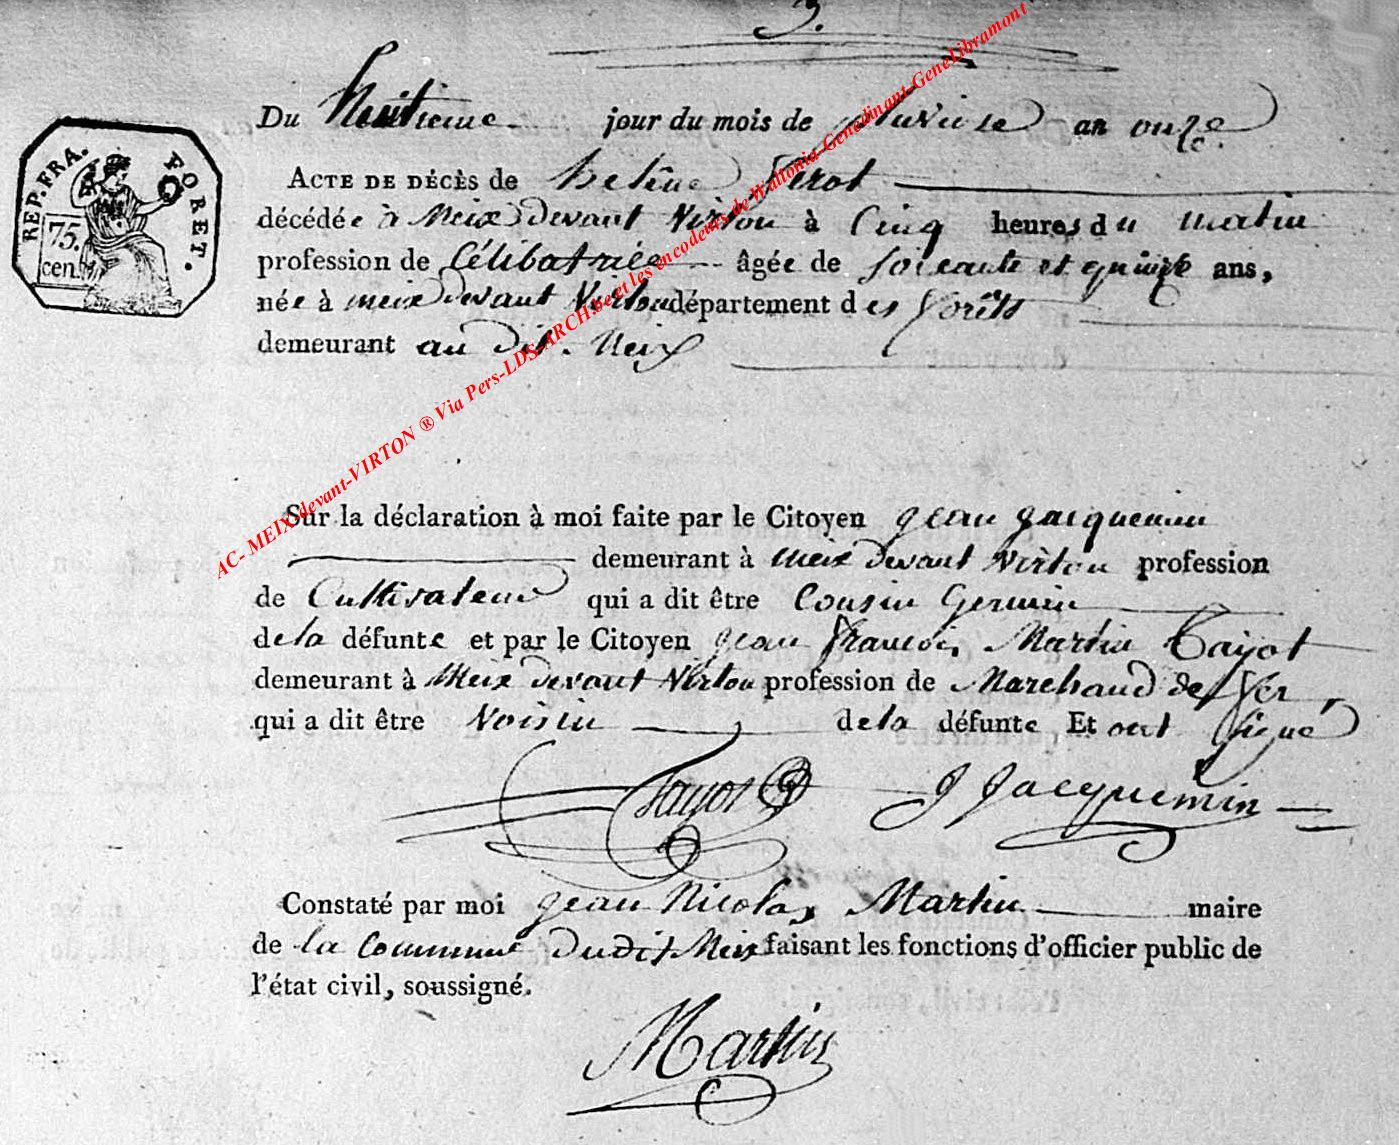 3.
Du huitieme jour du mois de pluviose an onze.
REP. FRA. FORET.
75.
cen.
ACTE DE DÉCÈS de helène
décédée à Meix devant Virton à Cinq heures du matin
profession de Célibatrice âgée de soixante et quinze ans,
née à meix devant Virton département des forêts
demeurant au dit Meix
Sur la déclaration à moi faite par le Citoyen jean jacquemin
demeurant à meix devant Virton profession
de Cultivateur qui a dit être Cousin Germain
de la défunte et par le Citoyen jean francois Martin Tayot
demeurant à Meix devant Virton profession de Marchand de fer,
qui a dit être Voisin de la défunte Et ont signé
Tayot J Jacquemin
Constaté par moi jean Nicolas Martin maire
de la Commune du dit Meix faisant les fonctions d'officier public de
l'état civil, soussigné.
Martin
AC- MEIX-devant-VIRTON ® Via Pers-LDS-ARCH.be et les encodeurs de Wallonia-Genedinant-GeneLibramont